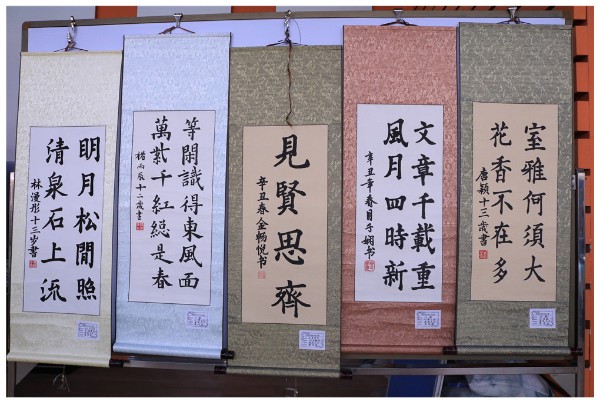 明月松間照
清泉石上流
林漫彤十三岁書
等閑識得東風面
萬紫千紅總是春
雨辰十二歲書
見賢思齊
辛丑春金畅悦书
文章千載重
風月四時新
辛丑年春月子娴书
室雅何須大
花香不在多
唐颖十三歲書